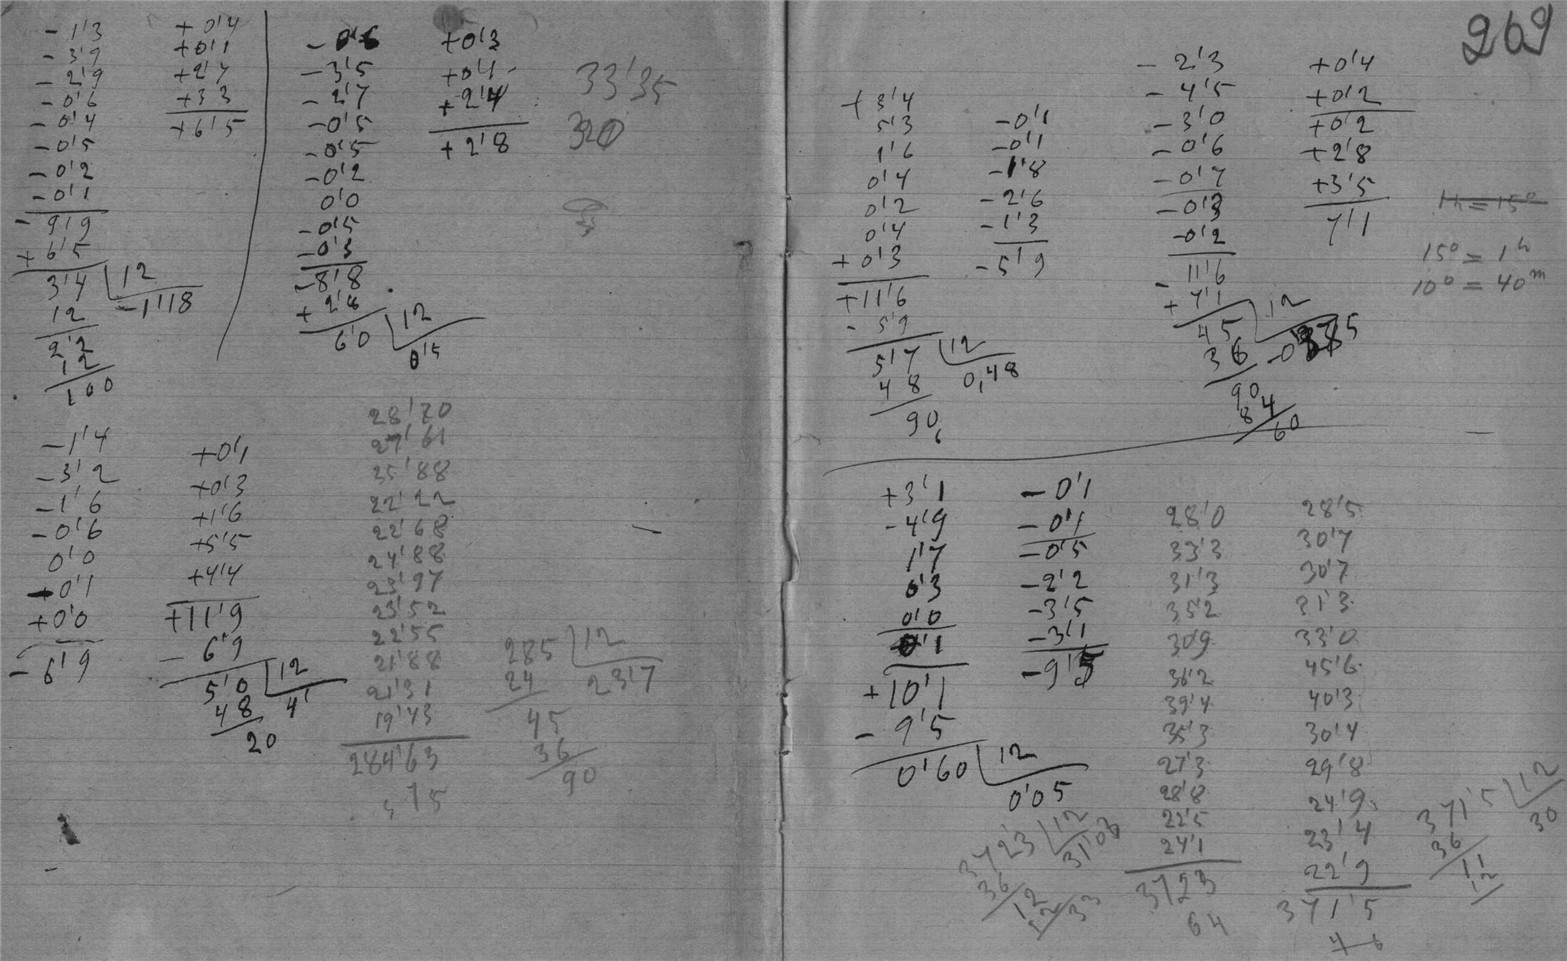 - 1'3 + 0'4
- 3'9 + 0'1
- 2'9 + 2'7
- 0'6 + 3'3
- 0'4 + 6'5
- 0'5
- 0'2
- 0'1
- 9'9
+ 6'5
3'4 12
12 - 1'18
2'2
12
100
- 0'6 + 0'3
- 3'5 + 0'1
- 2'7 + 2'4
- 0'5 + 2'8
- 0'5
- 0'2
0'0
- 0'5
- 0'3
- 8'8
+ 2'8
6'0 12
0'5
33'35
320
- 1'4 + 0'1
- 3'2 + 0'3
- 1'6 + 1'6
- 0'6 + 5'5
0'0 + 4'4
+ 0'1 + 11'9
+ 0'0 - 6'9
- 6'9 5'0 12
48 4'
20
28'70
27'61
25'88
22'22
22'68
24'88
23'97
23'52
22'55
21'88
21'31
19'43
284'63
285 12
24 23'7
45
36
90
269
+ 3'4 - 0'1
5'3 - 0'1
1'6 - 1'8
0'4 - 2'6
0'2 - 1'3
0'4 - 5'9
+ 0'3
+ 11'6
- 5'9
5'7 12
48 0,48
90
- 2'3 + 0'4
- 4'5 + 0'2
- 3'0 + 0'2
- 0'6 + 2'8
- 0'7 + 3'5
- 0'3 7'1
- 0'2
- 11'6
+ 7'1
45 12
36
90
84
60
1h = 15°
15° = 1h
10° = 40m
+ 3'1 - 0'1
- 4'9 - 0'1
1'7 - 0'5
0'3 - 2'2
0'0 - 3'5
0'1 - 3'1
+ 10'1 - 9'5
- 9'5
0'60 12
0'05
28'0 28'5
33'3 30'7
31'3 30'7
35'2 31'3
30'9 33'0
36'2 45'6
39'4 40'3
35'3 30'4
27'3 29'8
28'8 24'9
22'5 23'4
24'1 22'9
3723 371'5
64
3723 12
36 31'03
12
12
33
371'5 12
36 30
11
12